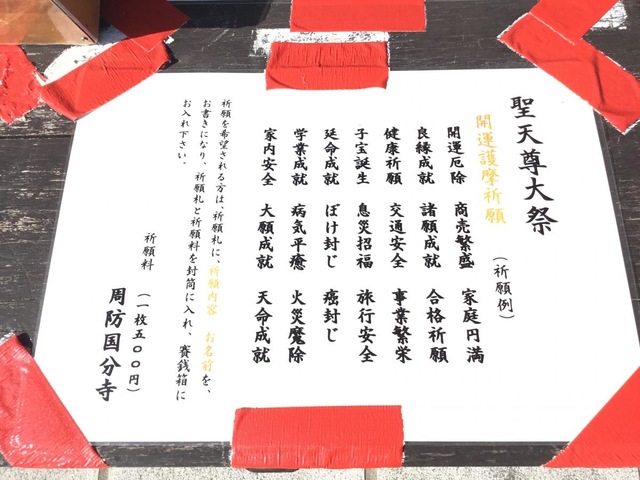 聖天尊大祭
開運護摩祈願
（祈願例）
開運厄除 商売繁盛 家庭円満
良縁成就 諸願成就 合格祈願
健康祈願 交通安全 事業繁栄
子宝誕生 息災招福 旅行安全
延命成就 ぼけ封じ 癌封じ
学業成就 病気平癒 火災魔除
家内安全 大願成就 天命成就
祈願を希望される方は、祈願札に、祈願内容 お名前を、
お書きになり、祈願札と祈願料を封筒に入れ、賽銭箱に
お入れ下さい。
祈願料 （一枚五〇〇円）
周防国分寺